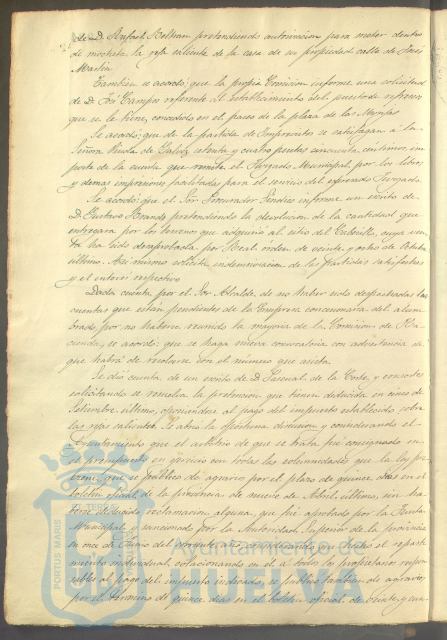 de D. Rafael Beltran pretendiendo autorizacion para meter dentro
de mocheta la reja saliente de la casa de su propiedad calle de José
Martin.
Tambien se acordó: que la propia Comision informe una solicitud
de D. José Campos referente al establecimiento del puesto de refrescos
que se le tiene concedido en el paseo de la plaza de las Monjas
Se acordó: que de la partida de Imprevistos se satisfagan á la
Señora Viuda de setenta y cuatro pesetas cincuenta centimos im-
porte de la cuenta que remite el Juzgado Municipal, por los libros
y demas impresiones facilitadas para el servicio del espresado Juzgado.
Se acordó: que el Sor. Procurador Sindico informe un escrito de
D. Gustavo pretendiendo la devolucion de la cantidad que
entregara por los terrenos que adquirió al sitio del cuya ven-
ta ha sido desaprobada por Real orden de veinte y ocho de Octubre
último. Asi mismo solicita indemnizacion de las partidas satisfechas
y el interés respectivo
Dada cuenta por el Sor. Alcalde de no haber sido despachadas las
cuentas que están pendientes de la Empresa concesionaria del alum-
brado por no haberse reunido la mayoria de la Comision de Ha-
cienda, se acordó: que se haga nueva convocatoria con advertencia de
que habrá de resolverse con el número que asista.
Se dió cuenta de un escrito de D. Pascual de la Corte, y consortes
solicitando se resuelva la pretension que tienen deducida en cinco de
Setiembre último, oponiendose al pago del impuesto establecido sobre
las rejas salientes. Se abrió la oportuna discusion y considerando el
Ayuntamiento que el arbitrio de que se trata fué consignado en
el presupuesto en ejercicio con todas las solemnidades que la ley pre-
viene, que se publicó de agravio por el plazo de quince dias en el
boletin oficial de la provincia de nueve de Abril último, sin ha-
berse deducido reclamacion alguna, que fué aprobado por la Junta
Municipal y sancionado por la Autoridad Superior de la provincia
en once de Junio del presente año; considerando el reparti-
miento individual, relacionando en él á todos los propietarios respon-
sables al pago del impuesto indicado, se publicó tambien de agravio,
por el término de quince dias en el boletin oficial de veinte y cua-
PORTUS MARIS
Ayuntamiento de
HUELVA